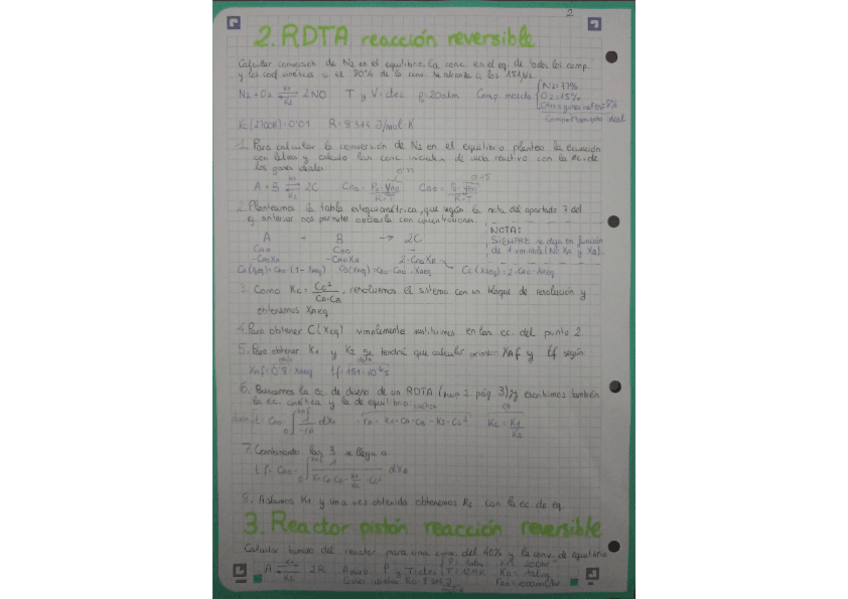 2
2. RDTA reacción reversible
Calcular conversión de N2 en el equilibrio, la conc. en el eq. de todos los comp.
y los coef cinéticos si el 80% de la conv. se alcanza a los 151 μs.
N2 + O2 ⇄ 2NO T y V = ctes P0 = 20atm Comp. mezcla N2 = 77%
O2 = 15%
8%
Comportamiento ideal
Kc (2700K) = 0'01 R = 8'314 J/mol K
1. Para calcular la conversión de N2 en el equilibrio planteo la ecuación
con letras y calculo las conc. iniciales de cada reactivo con la ec. de
los gases ideales:
A + B ⇄ 2C CA0 = P0·yA0/R·T CB0 = P0·yB0/R·T
2. Planteamos la tabla estequiométrica, que según la nota del apartado 7 del
ej. anterior nos permite hacerla con concentraciones.
NOTA:
A + B → 2C
SIEMPRE se deja en función
CA0 CB0 -
de 1 variable (No XA y XB).
-CA0XA -CA0XA 2·CA0XA
CA (XAeq) = CA0·(1-XAeq) CB (XAeq) = CB0 - CA0·XAeq CC (XAeq) = 2·CA0·XAeq
3. Como Kc = Cc²/CA·CB, resolvemos el sistema con un bloque de resolución y
obtenemos XAeq.
4. Para obtener C(Xeq) simplemente sustituimos en las ec. del punto 2.
5. Para obtener K1 y K2 se tendrá que calcular antes: XAf y tf según:
XAf = 0'8·XAeq tf = 151·10^-6 s
6. Buscamos la ec. de diseño de un RDTA (nup 2 pág 3) y escribimos también
la ec. cinética y la de equilibrio:
t = CA0·∫ 1/-rA dXA -rA = K1·CA·CB - K2·Cc² Kc = K1/K2
7. Combinando las 3 se llega a:
tf = CA0·∫ 1/K1·CA·CB - K1/Kc·Cc² dXA
8. Aislamos K1 y una vez obtenida obtenemos K2 con la ec. de eq.
3. Reactor pistón reacción reversible
Calcular tamaño del reactor para una conv. del 40% y la conv. de equilibrio
A ⇄ 2R